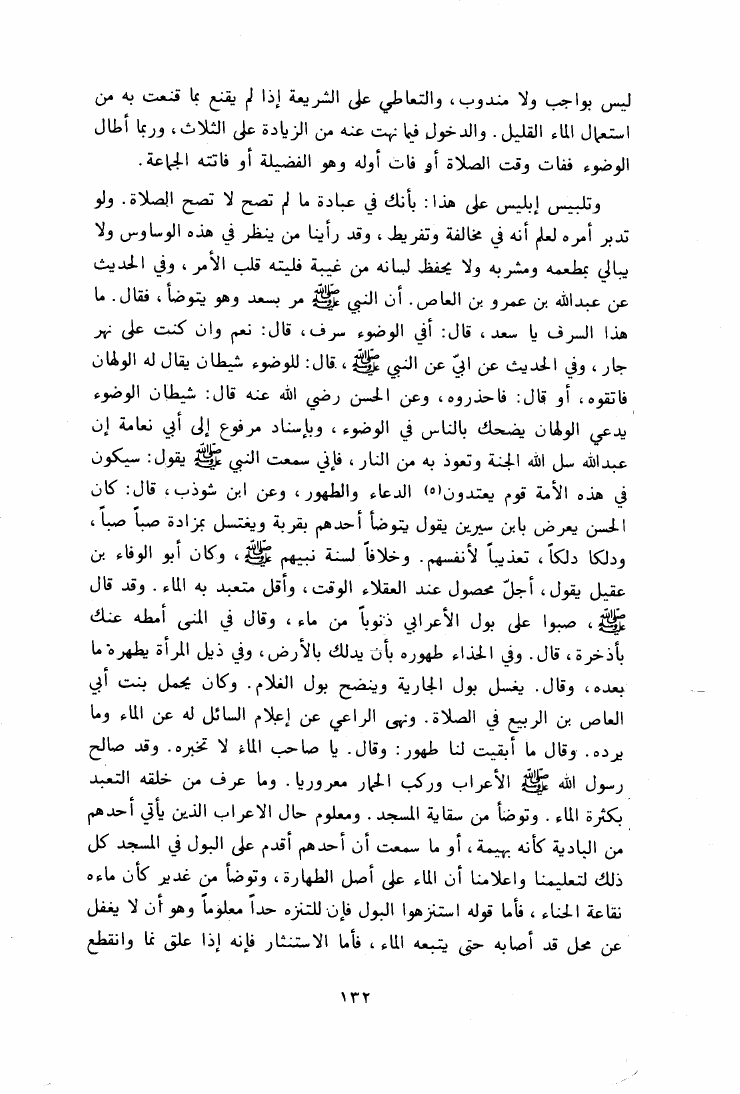 ليس بواجب ولا مندوب، والتعاطي على الشريعة إذا لم يقنع بما قنعت به من
استعمال الماء القليل. والدخول فيما نهت عنه من الزيادة على الثلاث، وربما أطال
الوضوء ففات وقت الصلاة أو فات أوله وهو الفضيلة أو فاتته الجماعة.
وتلبيس إبليس على هذا: بأنك في عبادة ما لم تصح لا تصح الصلاة. ولو
تدبر أمره لعلم أنه في مخالفة وتفريط، وقد رأينا من ينظر في هذه الوساوس ولا
يبالي بمطعمه ومشربه ولا يحفظ لسانه من غيبة فليته قلب الأمر، وفي الحديث
عن عبدالله بن عمرو بن العاص. أن النبي ﷺ مر بسعد وهو يتوضأ، فقال. ما
هذا السرف يا سعد، قال: أفي الوضوء سرف، قال: نعم وان كنت على نهر
جار، وفي الحديث عن ابيّ عن النبي ﷺ، قال: للوضوء شيطان يقال له الولهان
فاتقوه، أو قال: فاحذروه، وعن الحسن رضي الله عنه قال: شيطان الوضوء
يدعي الولهان يضحك بالناس في الوضوء، وبإسناد مرفوع إلى أبي نعامة إن
عبدالله سل الله الجنة وتعوذ به من النار، فإني سمعت النبي ﷺ يقول: سيكون
في هذه الأمة قوم يعتدون(٥) الدعاء والطهور، وعن ابن شوذب، قال: كان
الحسن يعرض بابن سيرين يقول يتوضأ أحدهم بقربة ويغتسل بمزادة صباً صباً،
ودلكا دلكاً، تعذيباً لأنفسهم. وخلافاً لسنة نبيهم ﷺ، وكان أبو الوفاء بن
عقيل يقول، أجلّ محصول عند العقلاء الوقت، وأقل متعبد به الماء. وقد قال
ﷺ، صبوا على بول الأعرابي ذنوباً من ماء، وقال في المنى أمطه عنك
بأذخرة، قال. وفي الحذاء طهوره بأن يدلك بالأرض، وفي ذيل المرأة يطهره ما
بعده، وقال. يغسل بول الجارية وينضح بول الغلام. وكان يحمل بنت أبي
العاص بن الربيع في الصلاة. ونهى الراعي عن إعلام السائل له عن الماء وما
يرده. وقال ما أبقيت لنا طهور: وقال. يا صاحب الماء لا تخبره. وقد صالح
رسول الله ﷺ الأعراب وركب الحمار معروريا. وما عرف من خلقه التعبد
بكثرة الماء. وتوضأ من سقاية المسجد. ومعلوم حال الاعراب الذين يأتي أحدهم
من البادية كأنه بهيمة، أو ما سمعت أن أحدهم أقدم على البول في المسجد كل
ذلك لتعليمنا واعلامنا أن الماء على أصل الطهارة، وتوضأ من غدير كأن ماءه
نقاعة الحناء، فأما قوله استنزهوا البول فإن للتنزه حداً معلوماً وهو أن لا يغفل
عن محل قد أصابه حتى يتبعه الماء، فأما الاستنثار فإنه إذا علق نما وانقطع
١٣٢